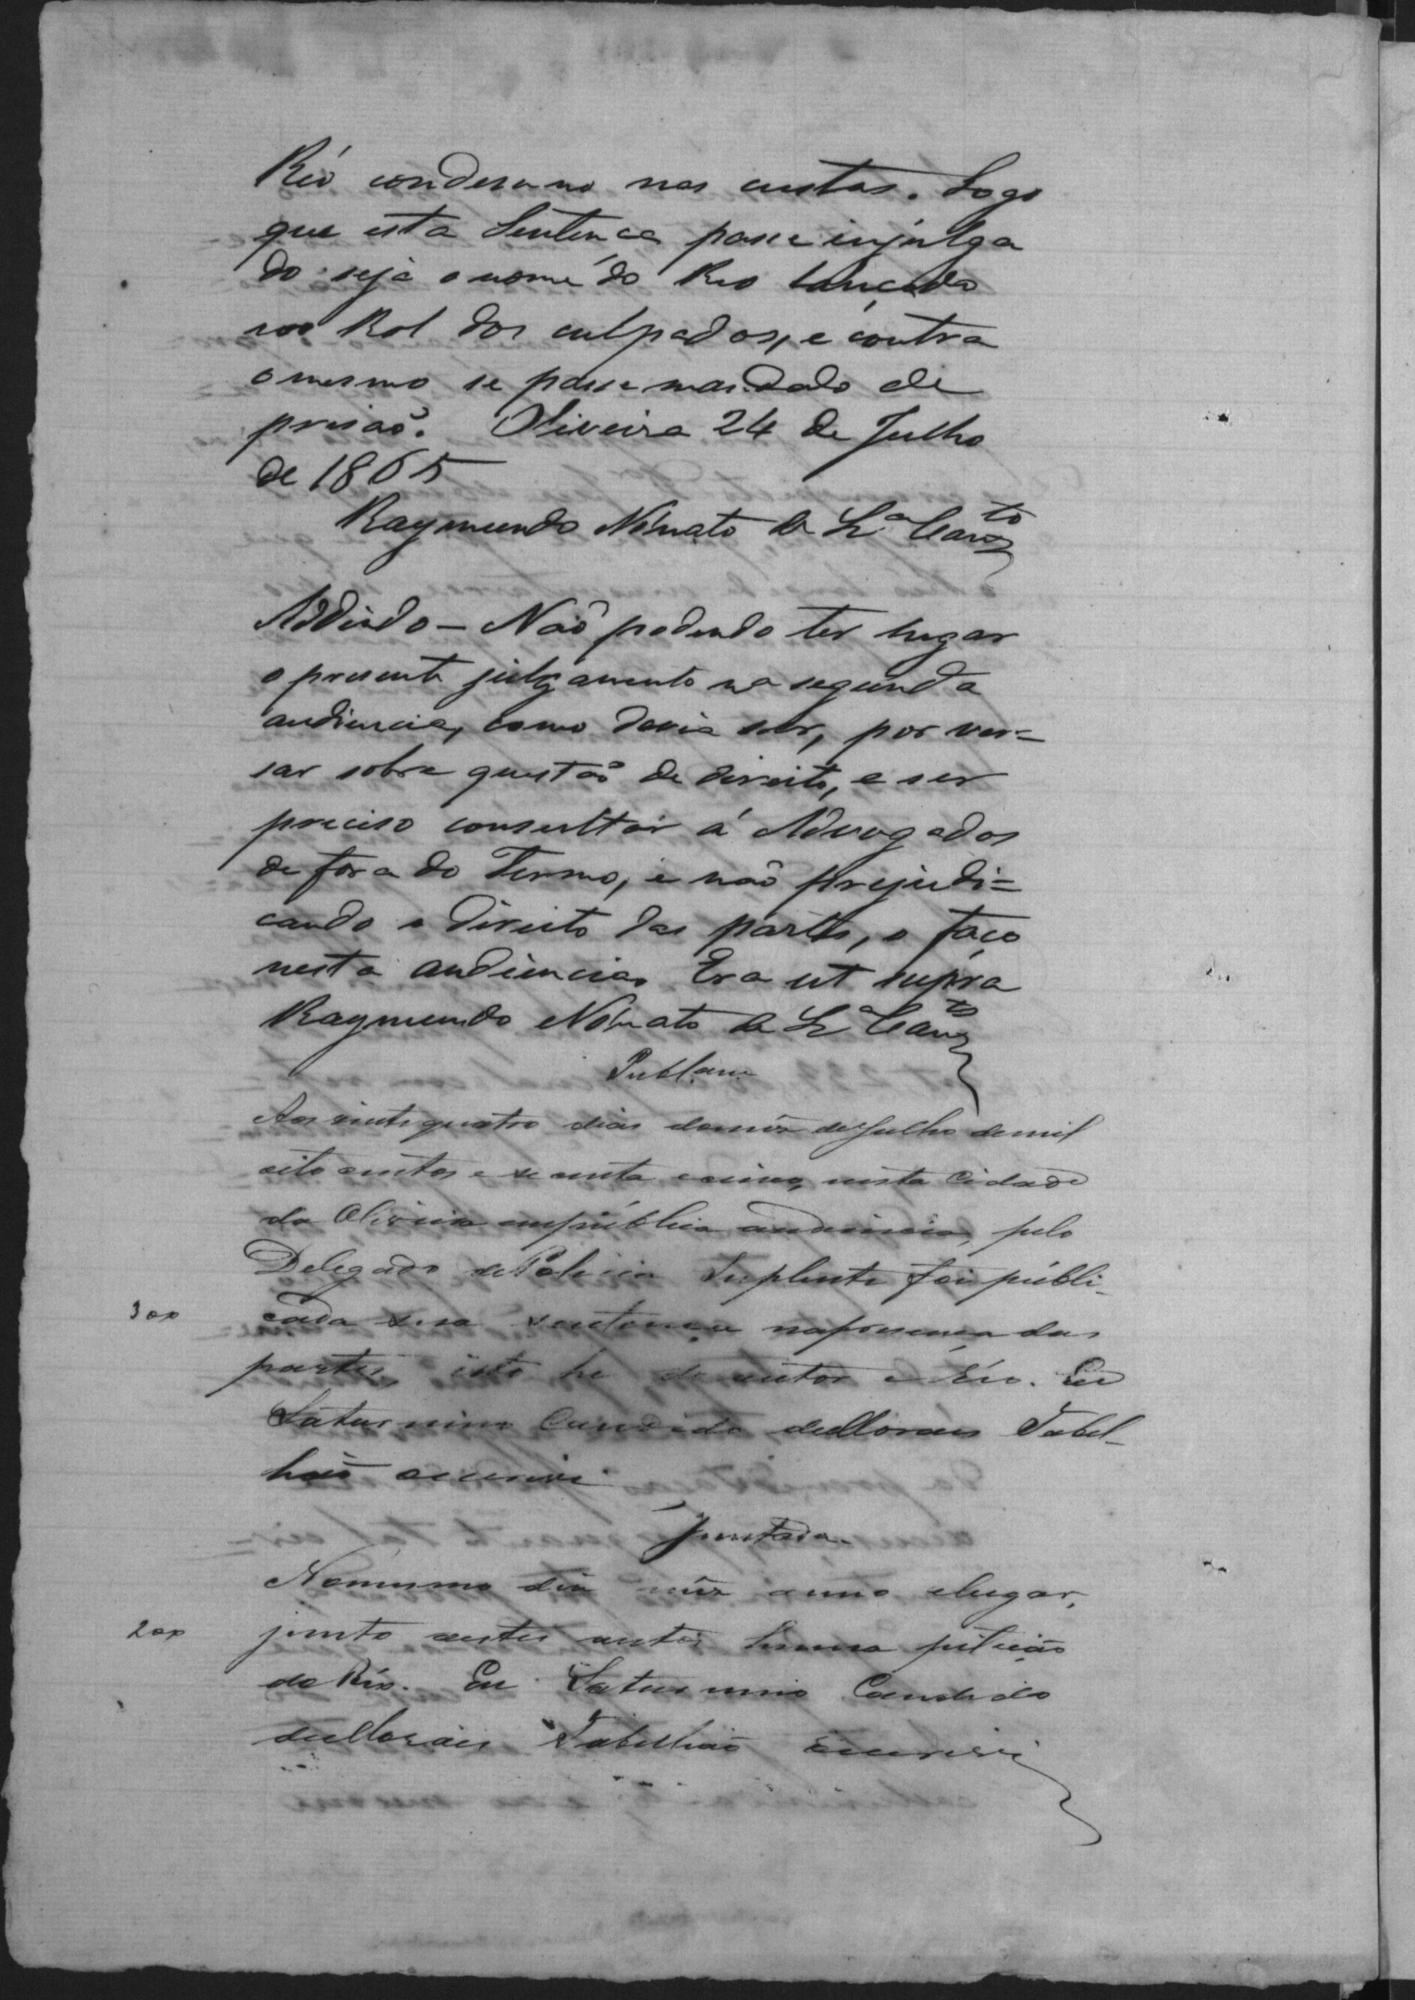 Réo condemno nas custas. Logo
que esta Sentença passe em julga
do seja o nome do Reo lançado
no Rol dos culpados, e contra
o mesmo se passe mandado de
prisaõ. Oliveira 24 de Julho
de 1865
Raymundo Nonato da Sª
Addindo - Naõ podendo ter lugar
o presente julgamento na segunda
audiencia, como devia ser, por ver=
sar sobre questaõ de direito, e ser
preciso consultar á Advogados
de fora do Termo, e naõ prejudi=
cando o direito das partes, o faço
nesta audiencia. Era ut supra
Raymundo Nonato da Sª
Publ.am
Aos vinte quatro dias do mez de Julho de mil
oito centos e secenta e cinco, nesta Cidade
da Oliveira em pública audiencia, pelo
Delegado de Policia Suplente foi públi-
300 cada sua sentença na presença das
partes, isto he do autor e Réo. Eu
Saturnino Candido de Moraes Tabel-
haõ escrevi
Juntada.
No mesmo dia mez anno e lugar,
200 junto a estes autos huma petiçaõ
do Réo. Eu Saturnino Candido
de Moraes Tabelhaõ escrevi